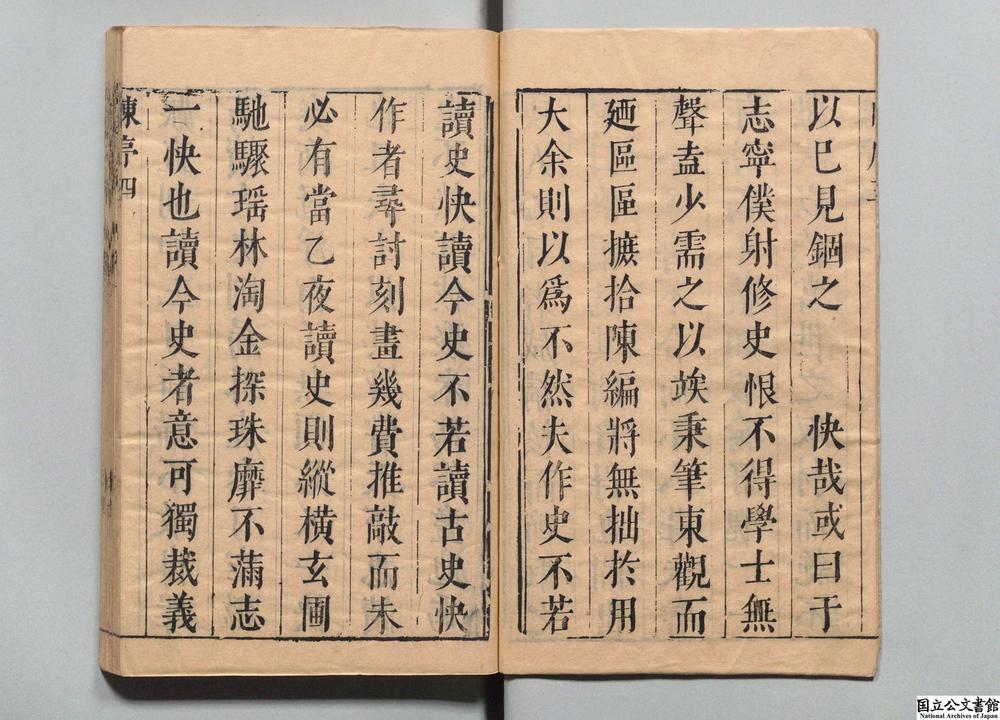 以已見錮之　快哉或曰于
志寧僕射修史恨不得學士無
聲盍少需之以竢秉筆東觀而
廼區區摭拾陳編將無拙於用
大余則以爲不然夫作史不若
讀史快讀今史不若讀古史快
作者尋討刻畫幾費推敲而未
必有當乙夜讀史則縱橫玄圃
馳驟瑶林淘金探珠靡不滿志
一快也讀今史者意可獨裁義
陳序四
国立公文書館
National Archives of Japan